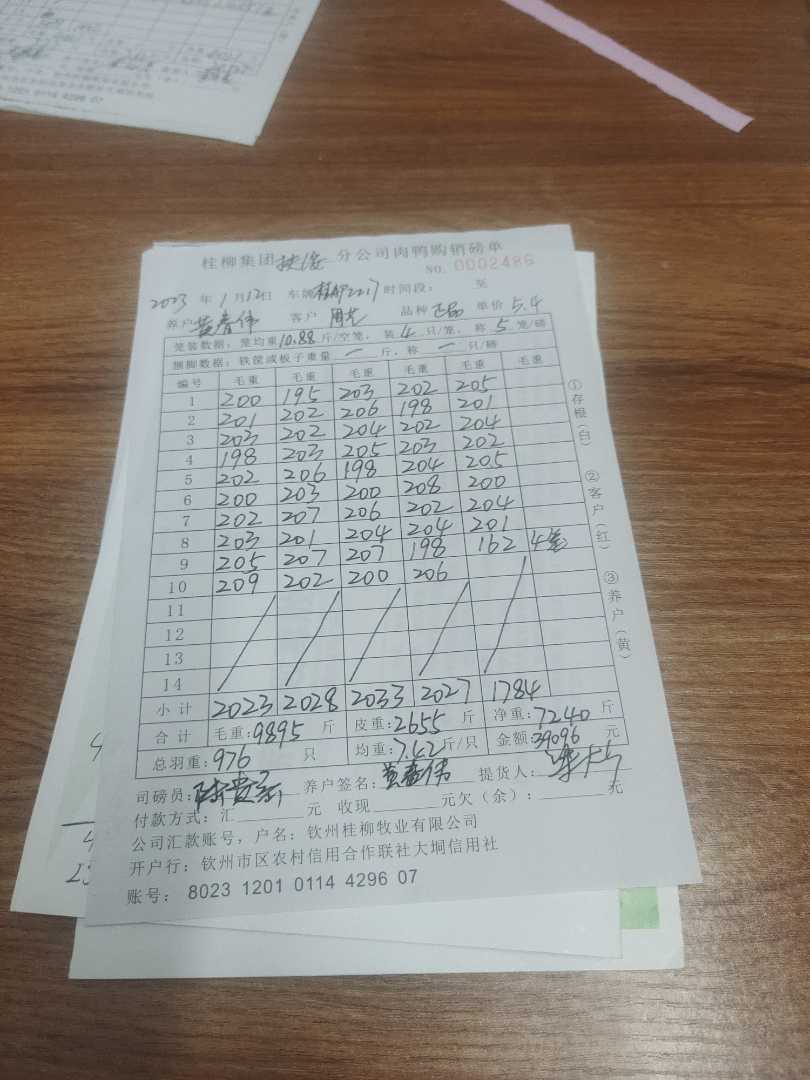 桂柳集团扶绥分公司肉鸭购销磅单
NO. 0002486
2023 年 1 月 12 日 车牌 2217 时间段： 至
养户 黄春伟 客户 品种 正品 单价 5.4
笼装数据：笼均重 10.88 斤/空笼，装 4 只/笼，称 5 笼/磅
捆脚数据：铁筐或板子重量 一 斤，称 一 只/磅
编号 毛重 毛重 毛重 毛重 毛重 毛重
1 200 195 203 202 205
2 201 202 206 198 201
3 203 202 204 202 204
4 198 203 205 203 202
5 202 206 198 204 205
6 200 203 200 208 200
7 202 207 206 202 204
8 203 201 204 204 201
9 205 207 207 198 162 4笼
10 209 202 200 206
11
12
13
14
小计 2023 2028 2033 2027 1784
合计 毛重：9895 斤 皮重：2655 斤 净重：7240 斤
总羽重：976 只 均重：7.42 斤/只 金额：39096 元
司磅员： 养户签名：黄春伟 提货人：
付款方式：汇 元 收现 元欠（余）： 元
公司汇款账号，户名：钦州桂柳牧业有限公司
开户行：钦州市区农村信用合作联社大垌信用社
账号：8023 1201 0114 4296 07
①存根（白）
②客户（红）
③养户（黄）
1201 0114 4296 07